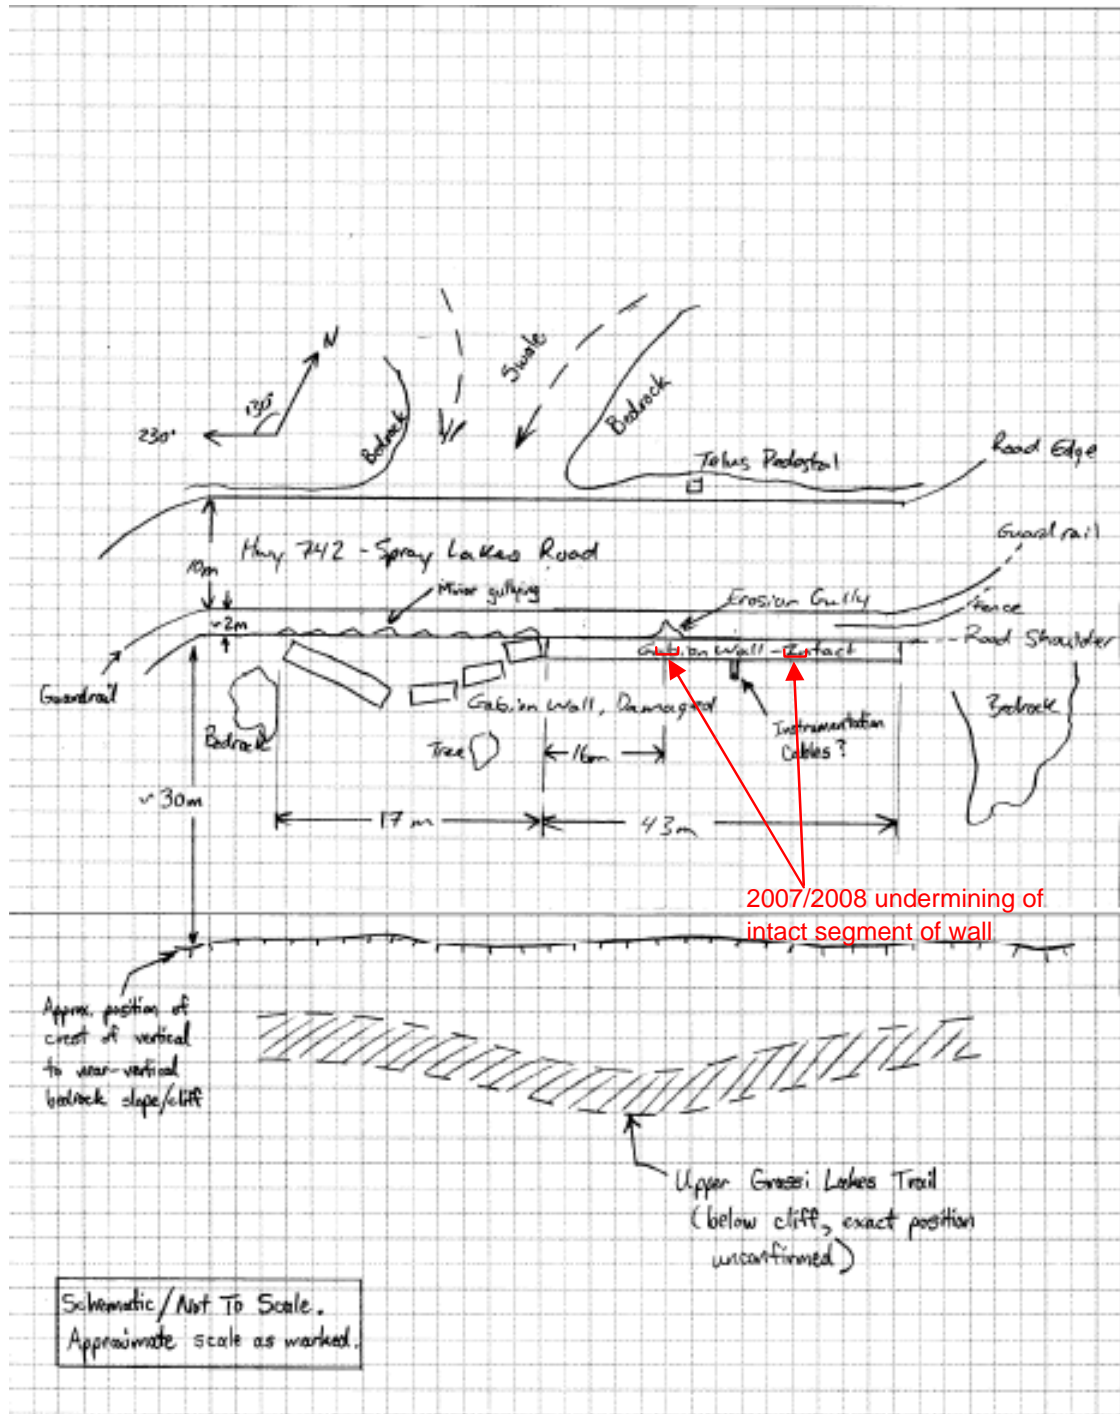 N
130°
230°
Swale
Bedrock
Bedrock
Telus Pedestal
Road Edge
Guardrail
Hwy 742 - Spray Lakes Road
10m
Minor gullying
Erosion Gully
Fence
~2m
Gabion Wall - Intact
Road Shoulder
Guardrail
Bedrock
Gabion Wall, Damaged
Bedrock
Instrumentation
Cables?
Tree
16m
~30m
17 m
43m
2007/2008 undermining of
intact segment of wall
Approx. position of
crest of vertical
to near-vertical
bedrock slope/cliff
Upper Grassi Lakes Trail
(below cliff, exact position
unconfirmed)
Schematic/Not To Scale.
Approximate scale as marked.